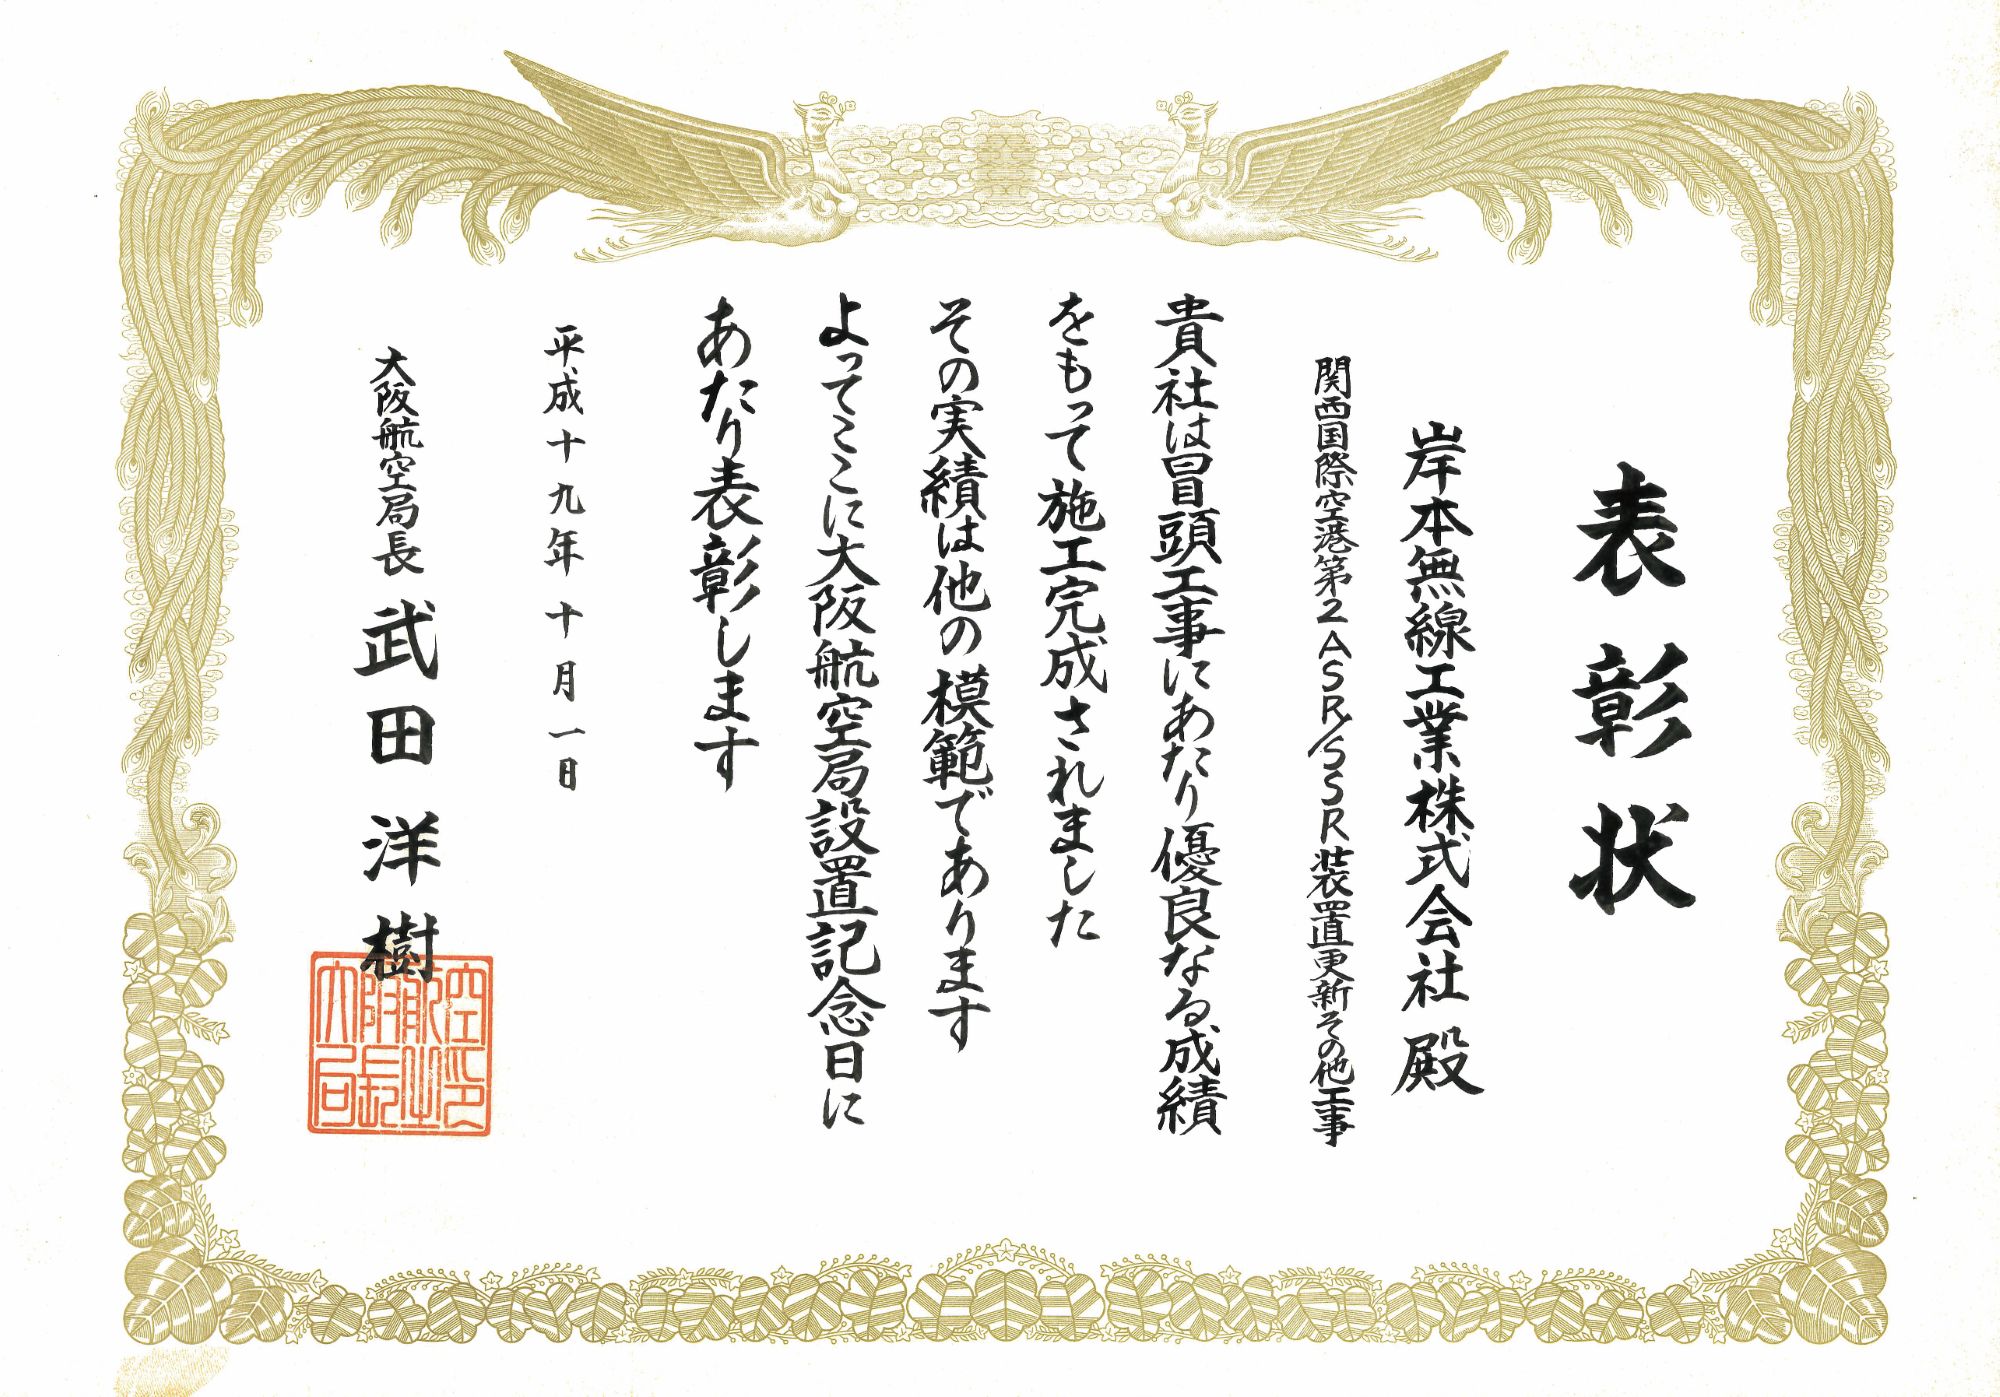 表彰状
岸本無線工業株式会社 殿
関西国際空港第2ASR/SSR装置更新その他工事
貴社は冒頭工事にあたり優良なる成績
をもって施工完成されました
その実績は他の模範であります
よってここに大阪航空局設置記念日に
あたり表彰します
平成十九年十月一日
大阪航空局長 武田洋樹
大阪航空局長之印